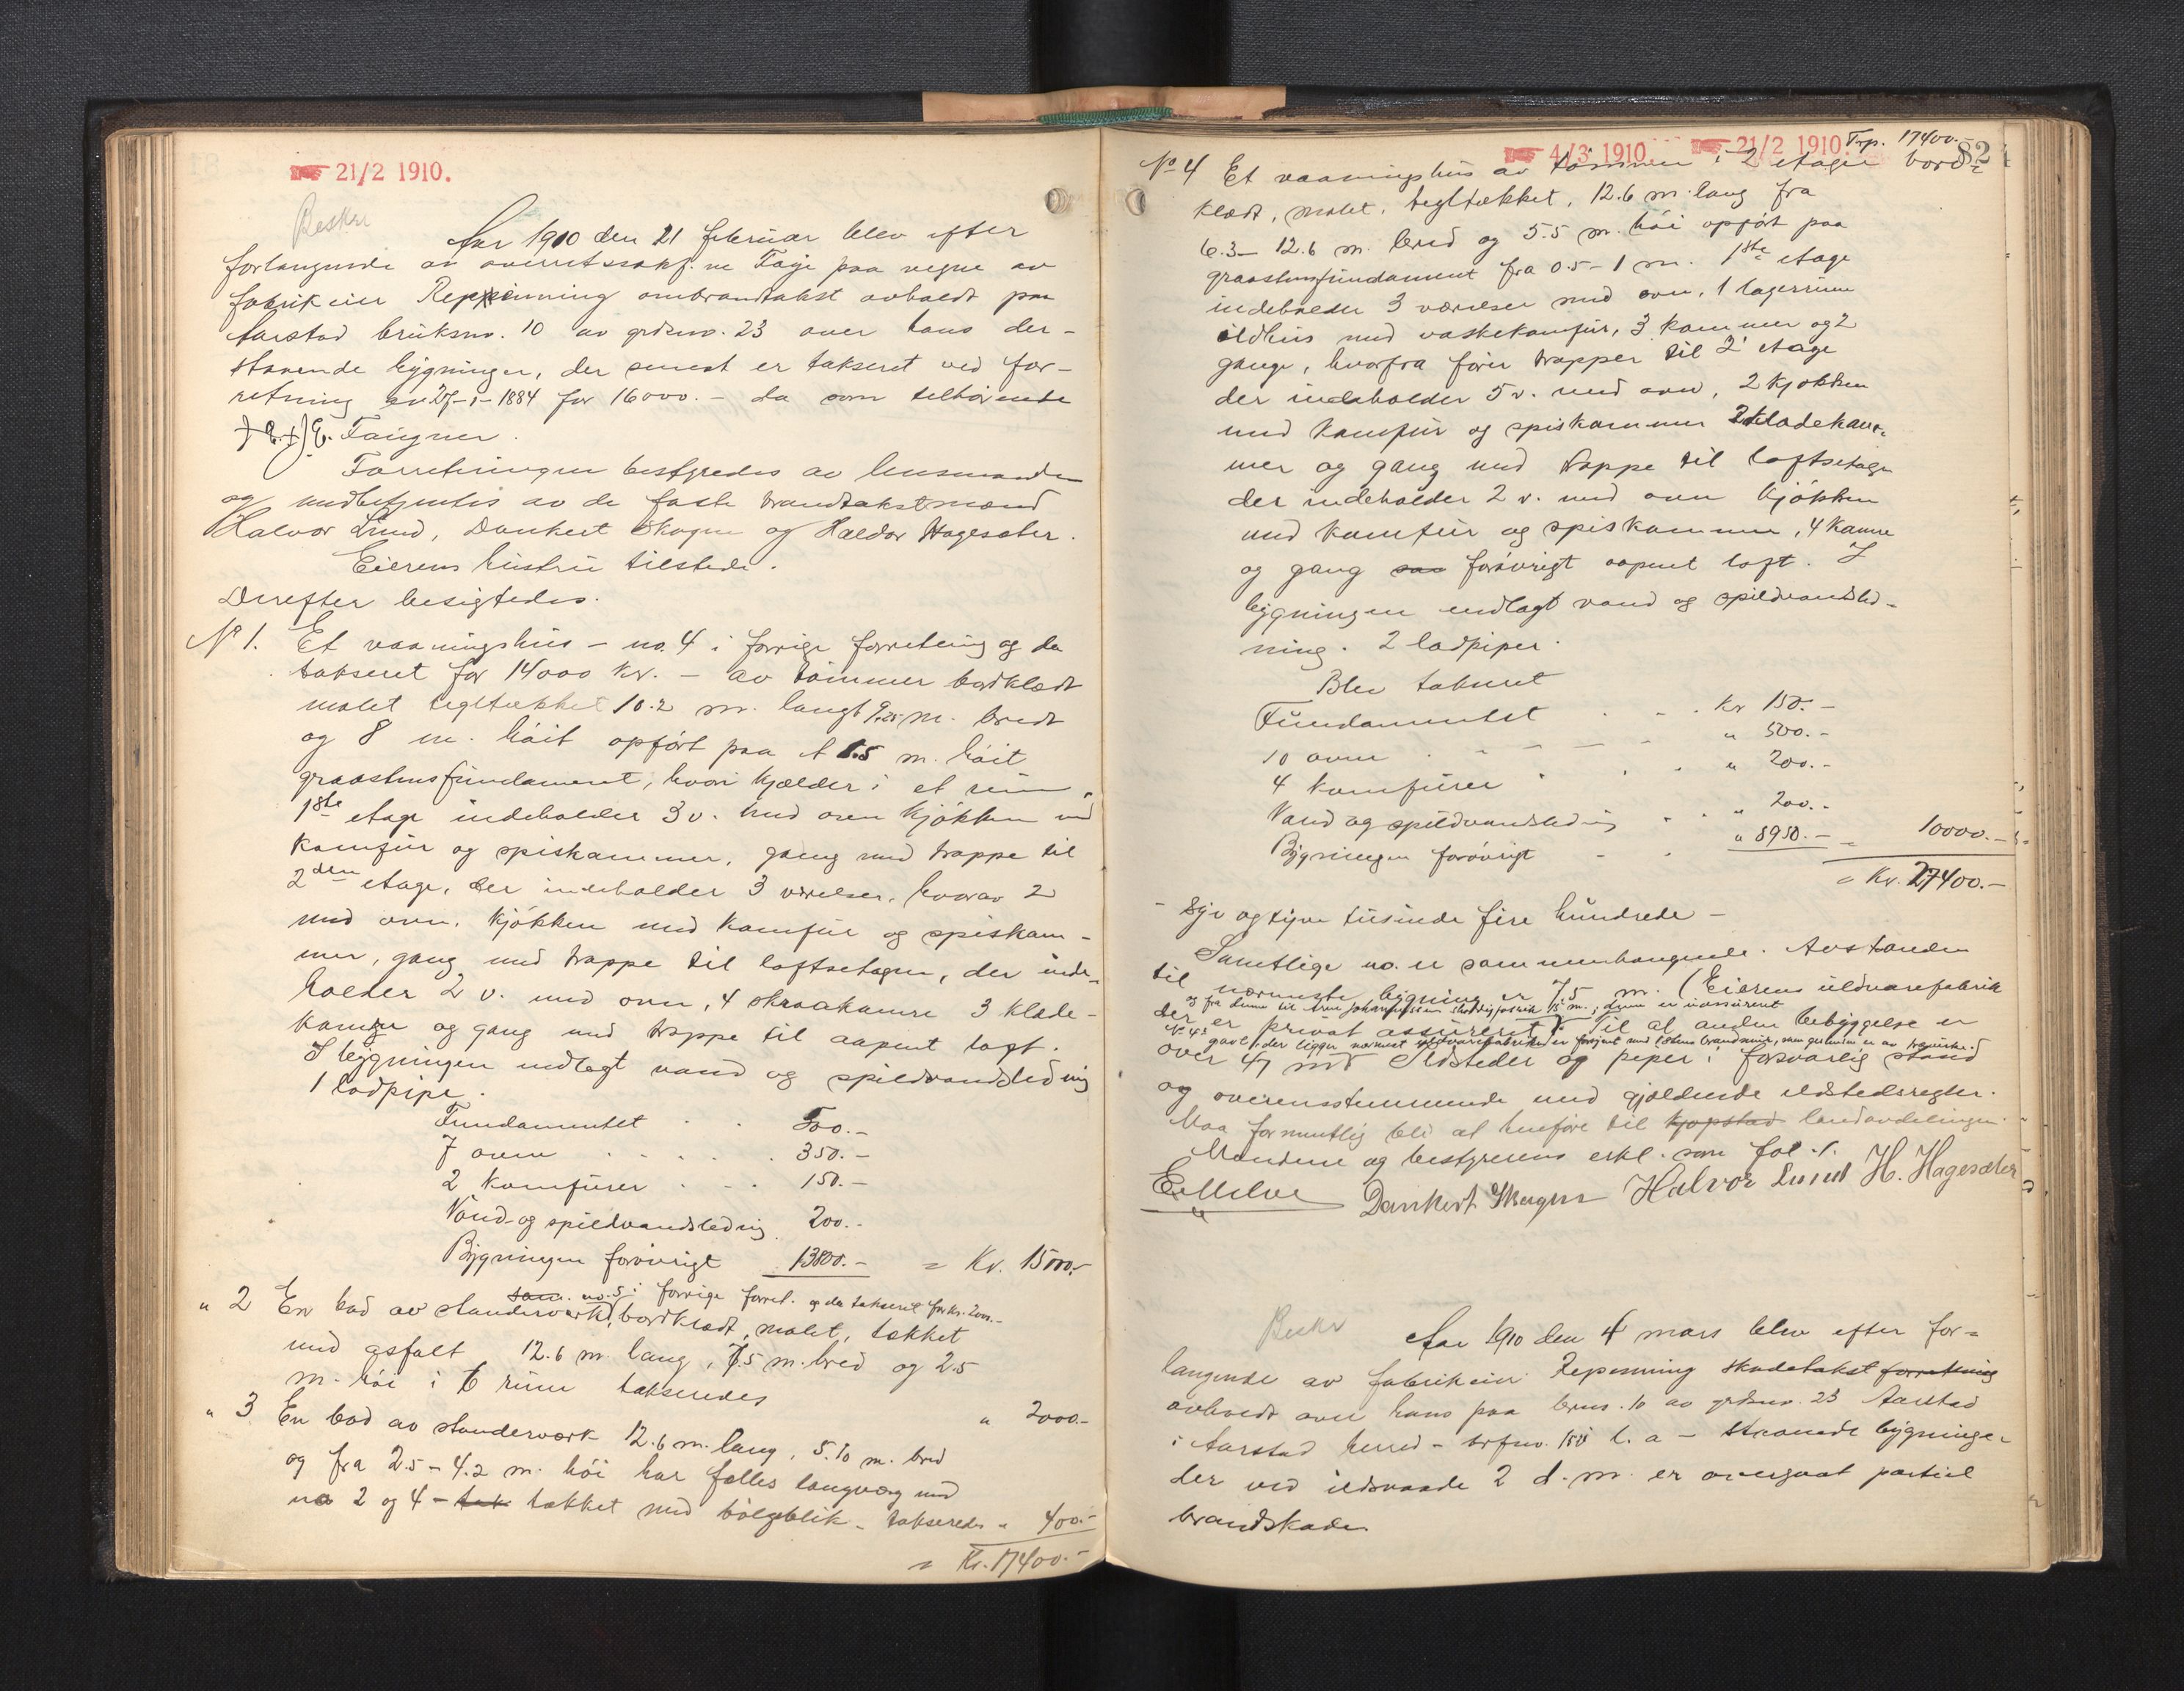 21/2 1910.
Beskr
Aar 1910 den 21 februar blev efter
forlangende av overretssakf. Faye paa vegne av
fabrikeier Reppenning ombrandtakst avholdt paa
Aarstad bruksno. 10 av grdsno. 23 over hans der-
staaende bygninger, der senest er takseret ved for-
retning 1884 for 16000.- da som tilhørende
Forretningen bestyredes av lensmanden
og medbetjentes av de faste brandtakstmænd
Halvor Lund, Dankert Skagen og Haldor Hagesæter.
Eierens hustru tilstede.
Derefter besigtedes.
No 1. Et vaaningshus - no. 4 i forrige forretning og da
takseret for 14000 kr. - av tømmer bordklædt
malet tegltækket 10.2 m. langt 9.25 m. bredt
og 8 m. høit opført paa et 1.5 m. høit
graastensfundament, hvori kjælder i et rum.
1ste etage indeholder 3 v. med ovn kjøkken med
komfur og spiskammer, gang med trappe til
2den etage, der indeholder 3 værelser, hvorav 2
med ovn, kjøkken med komfur og spiskam-
mer, gang med trappe til loftsetagen, der inde-
holder 2 v. med ovn, 4 skraakamre 3 klæde-
kamre og gang med trappe til aapent loft.
I bygningen indlagt vand og spildvandsledning
1 ladpipe.
Fundamentet . . 500.-
7 ovne . . . . . 350.-
2 komfurer . . . 150.-
Vand- og spildvandsledning 200.-
Bygningen forøvrigt 13800.- = Kr. 15000.-
som no. 5 i forrige forret. og da takseret for kr. 2000.-
" 2 En bod av standerverk, bordklædt, malet, tækket
med asfalt 12.6 m. lang, 7.5 m. bred og 2.5
m. høi i 6 rum takseredes " 2000.-
" 3 En bod av standerverk 12.6 m. lang, 5.10 m. bred
og fra 2.5 - 4.2 m. høi har fælles langvæg med
no 2 og 4 - tak tækket med bølgeblik - takseredes " 400.-
= Kr. 17400.-
4/3 1910. 21/2 1910. Trp. 17400.-
82
No 4 Et vaaningshus av tømmer i 2 etager bord-
klædt, malet, tegltækket, 12.6 m. lang fra
6.3 - 12.6 m. bred og 5.5 m. høi opført paa
graastensfundament fra 0.5 - 1 m. 1ste etage
indeholder 3 værelser med ovn, 1 lagerrum
ildhus med vaskekomfur, 3 kammer og 2
gange, hvorfra fører trapper til 2' etage
der indeholder 5 v. med ovn, 2 kjøkken
med komfur og spiskammer klædekam-
mer og gang med trappe til loftsetagen
der indeholder 2 v. med ovn kjøkken
med komfur og spiskammer, 4 kamre
og gang forøvrigt aapent loft. I
bygningen indlagt vand og spildvandsled-
ning. 2 ladpiper.
Blev takseret
Fundamentet . . . Kr 150.-
10 ovne . - - - - " 500.-
4 komfurer . . . " 200.-
Vand og spildvandsledning . . " 200.-
Bygningen forøvrigt - . " 8950.- = 10000.-
= Kr. 27400.-
- Syv og tyve tusinde fire hundrede -
Samtlige no. er sammenhængende. Avstanden
til nærmeste bygning er 75 m. (Eierens uldvarefabrik
og fra denne til Arne Johannessens skoddyfabrik 15 m., denne er uassureret
der er privat assureret). Til al anden bebyggelse er
No 4's gavl, der ligger nærmest uldvarefabriken er forsynt med brandmur, som er av
over 47 m. Ildsteder og piper i forsvarlig stand
og overensstemmende med gjældende ildstedsregler.
Maa formentlig bli at henføre til kjøpstad landavdelingen.
Mændene og bestyrerens erkl. som fol. 1.
Dankert Skagen Halvor Lund H. Hagesæter
Beskr
Aar 1910 den 4 mars blev efter for-
langende av fabrikeier Repenning skadetakst forretning
avholdt over hans paa brno. 10 av grdsno. 23 Aarstad
i Aarstad herred - brfno. 150 l. a - staaende bygninger
der ved ildsvaade 2 d. m. er overgaat partiel
brandskade.